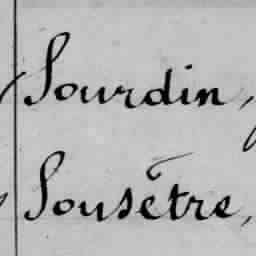 Sourdin,
Sousêtre,